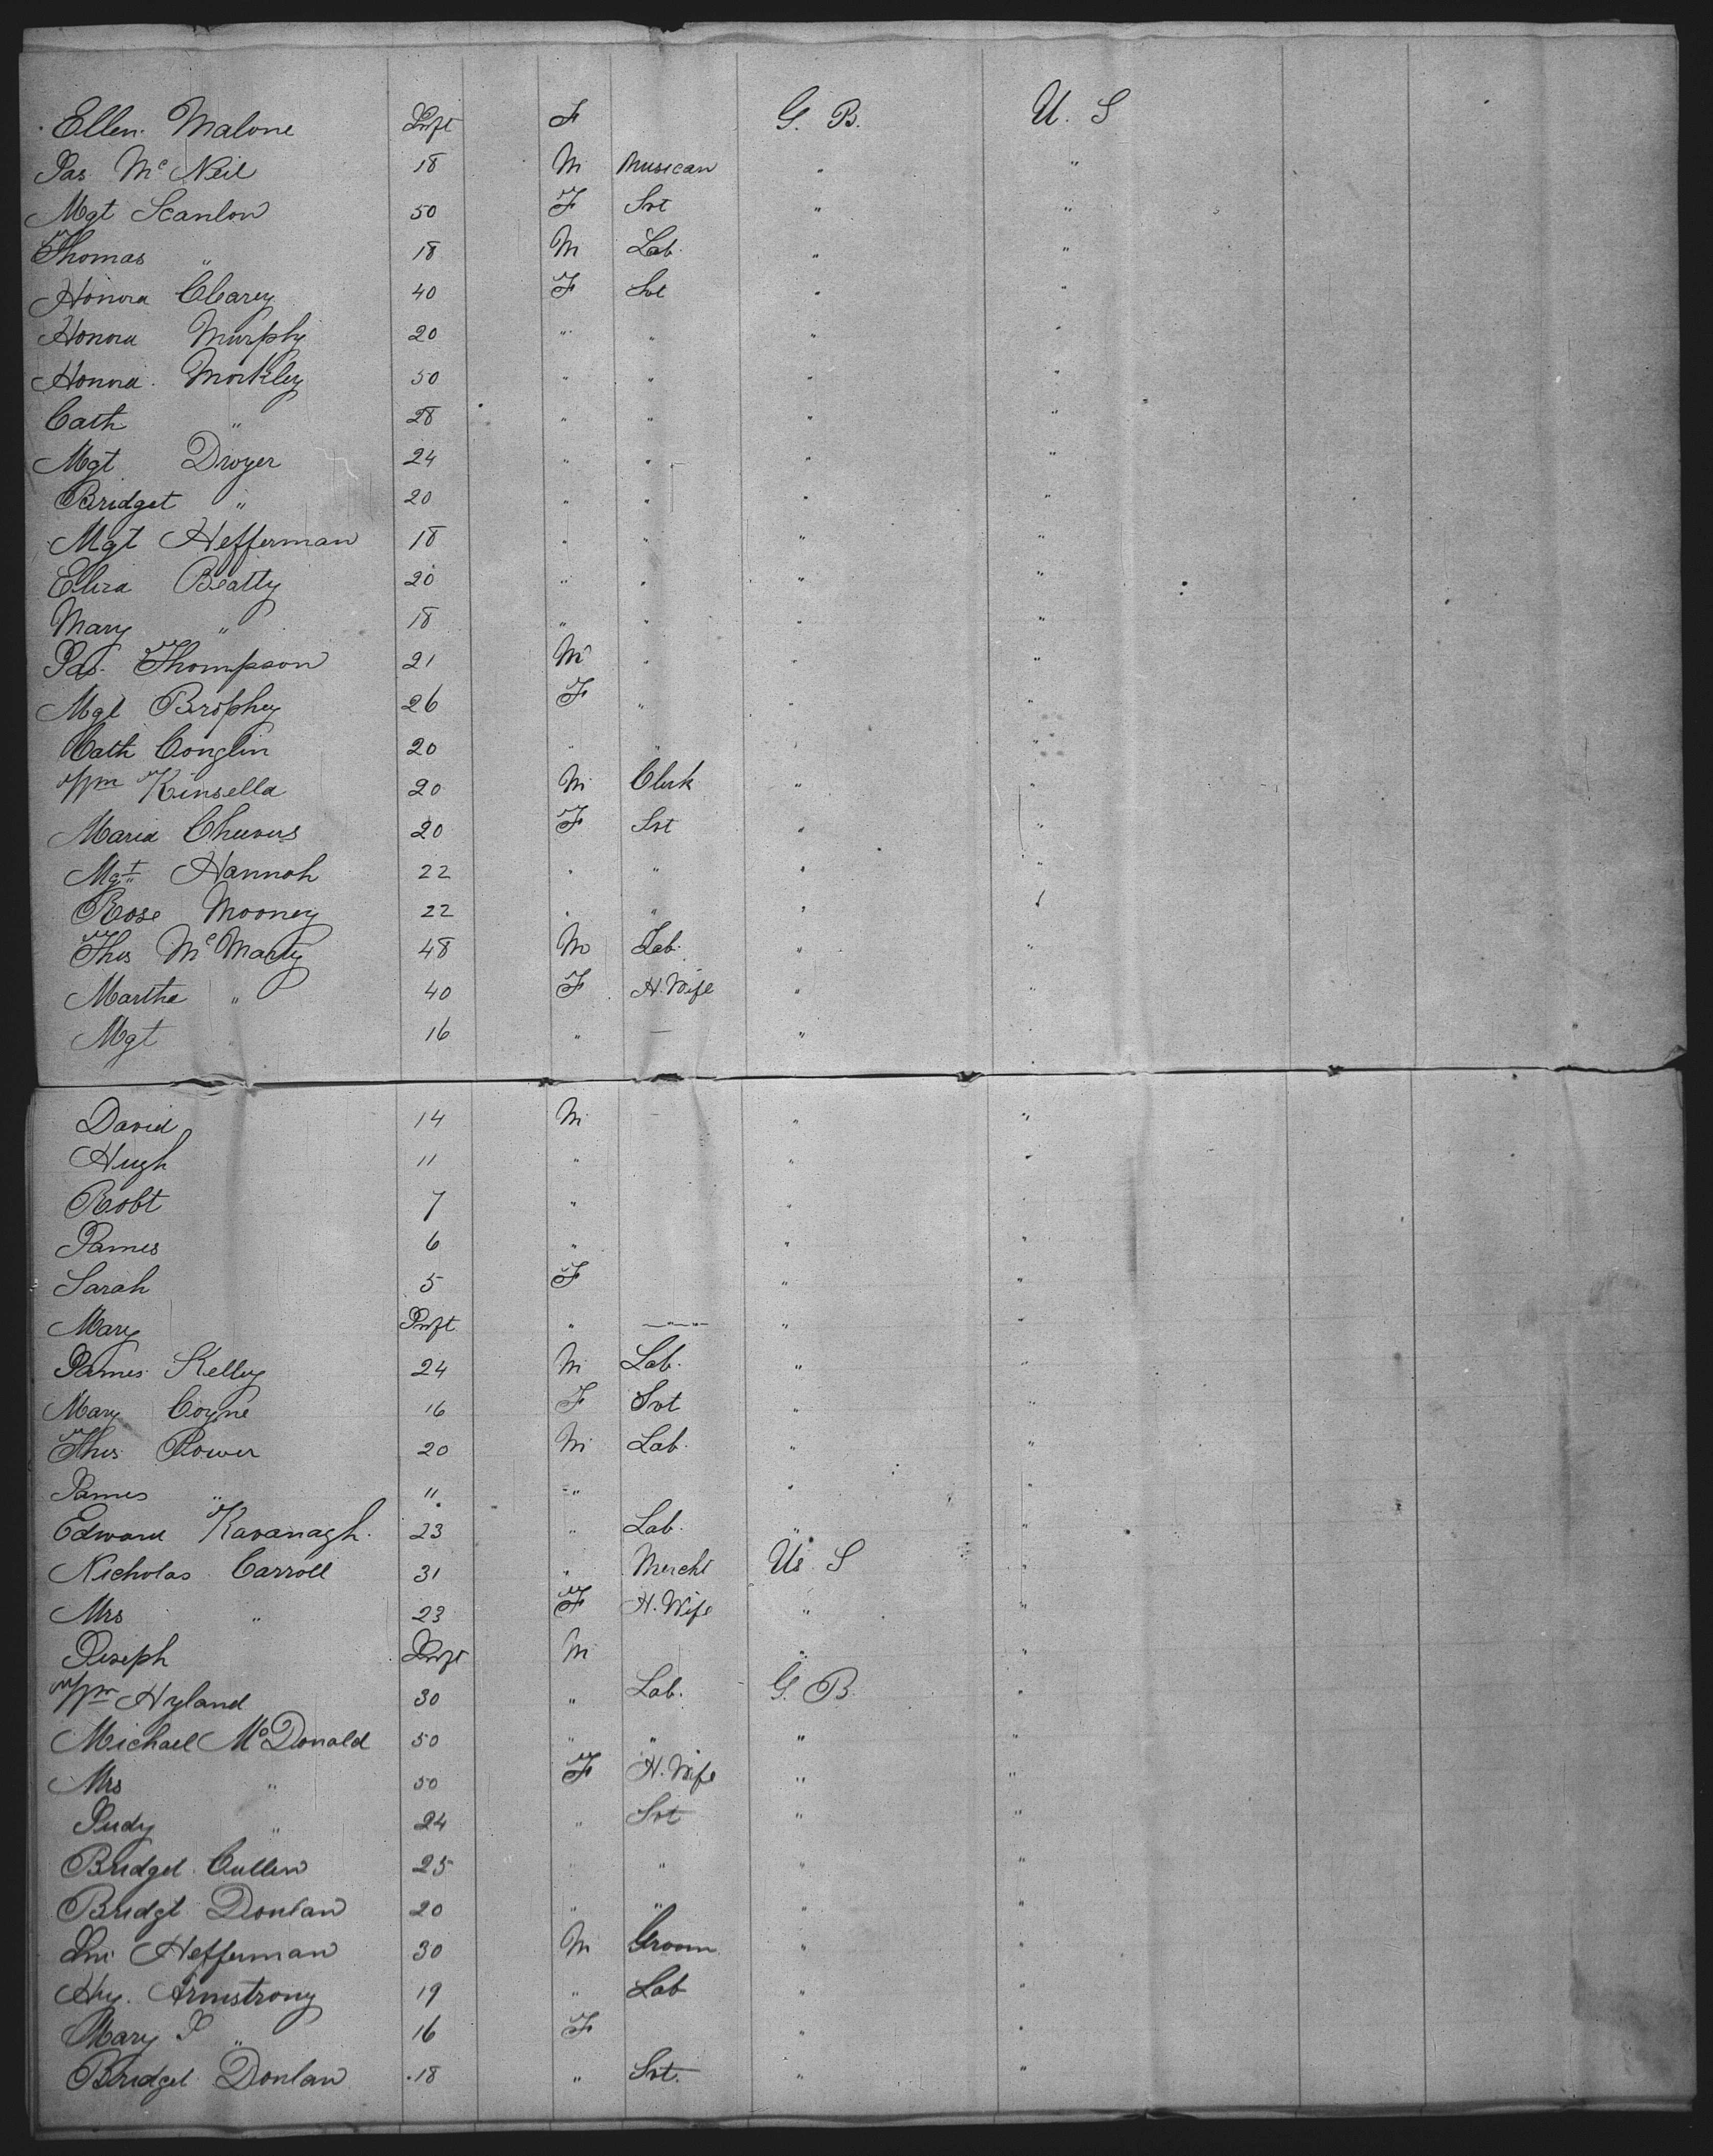 Ellen Malone Inft F G. B. U. S
Jas McNeil 18 M Musican " "
Mgt Scanlon 50 F Svt " "
Thomas " 18 M Lab. " "
Honora Cleary 40 F Svt " "
Honora Murphy 20 " " " "
Honora Morkley 50 " " " "
Cath " 28 " " " "
Mgt Dwyer 24 " " " "
Bridget " 20 " " " "
Mgt Hefferman 18 " " " "
Eliza Beatty 20 " " " "
Mary " 18 " " " "
Jas. Thompson 21 M " " "
Mgt Brophey 26 F " " "
Cath Conglin 20 " " " "
Wm Kinsella 20 M Clerk " "
Maria Cheevers 20 F Svt " "
Mgt Hannah 22 " " " "
Rose Mooney 22 " " " "
Thos McMarty 48 M Lab. " "
Martha " 40 F H. Wife " "
Mgt 16 " — " "
David 14 M — " "
Hugh 11 " " "
Robt 7 " " "
James 6 " " "
Sarah 5 F " "
Mary Inft " " "
James Kelley 24 M Lab. " "
Mary Coyne 16 F Svt " "
Thos Power 20 M Lab. " "
James " 11 " " "
Edward Kavanagh. 23 " Lab. " "
Nicholas Carroll 31 " Mercht U. S "
Mrs " 23 F H. Wife " "
Joseph Inft M " "
Wm Hyland 30 " Lab. G. B. "
Michael McDonald 50 " " " "
Mrs " 50 F H. Wife " "
Judy " 24 " Svt " "
Bridget Cullen 25 " " " "
Bridgt Donlan 20 " " " "
Hefferman 30 M Groom " "
Hy. Armstrong 19 " Lab " "
Mary J " 16 F " "
Bridget Donlan 18 " Svt. " "